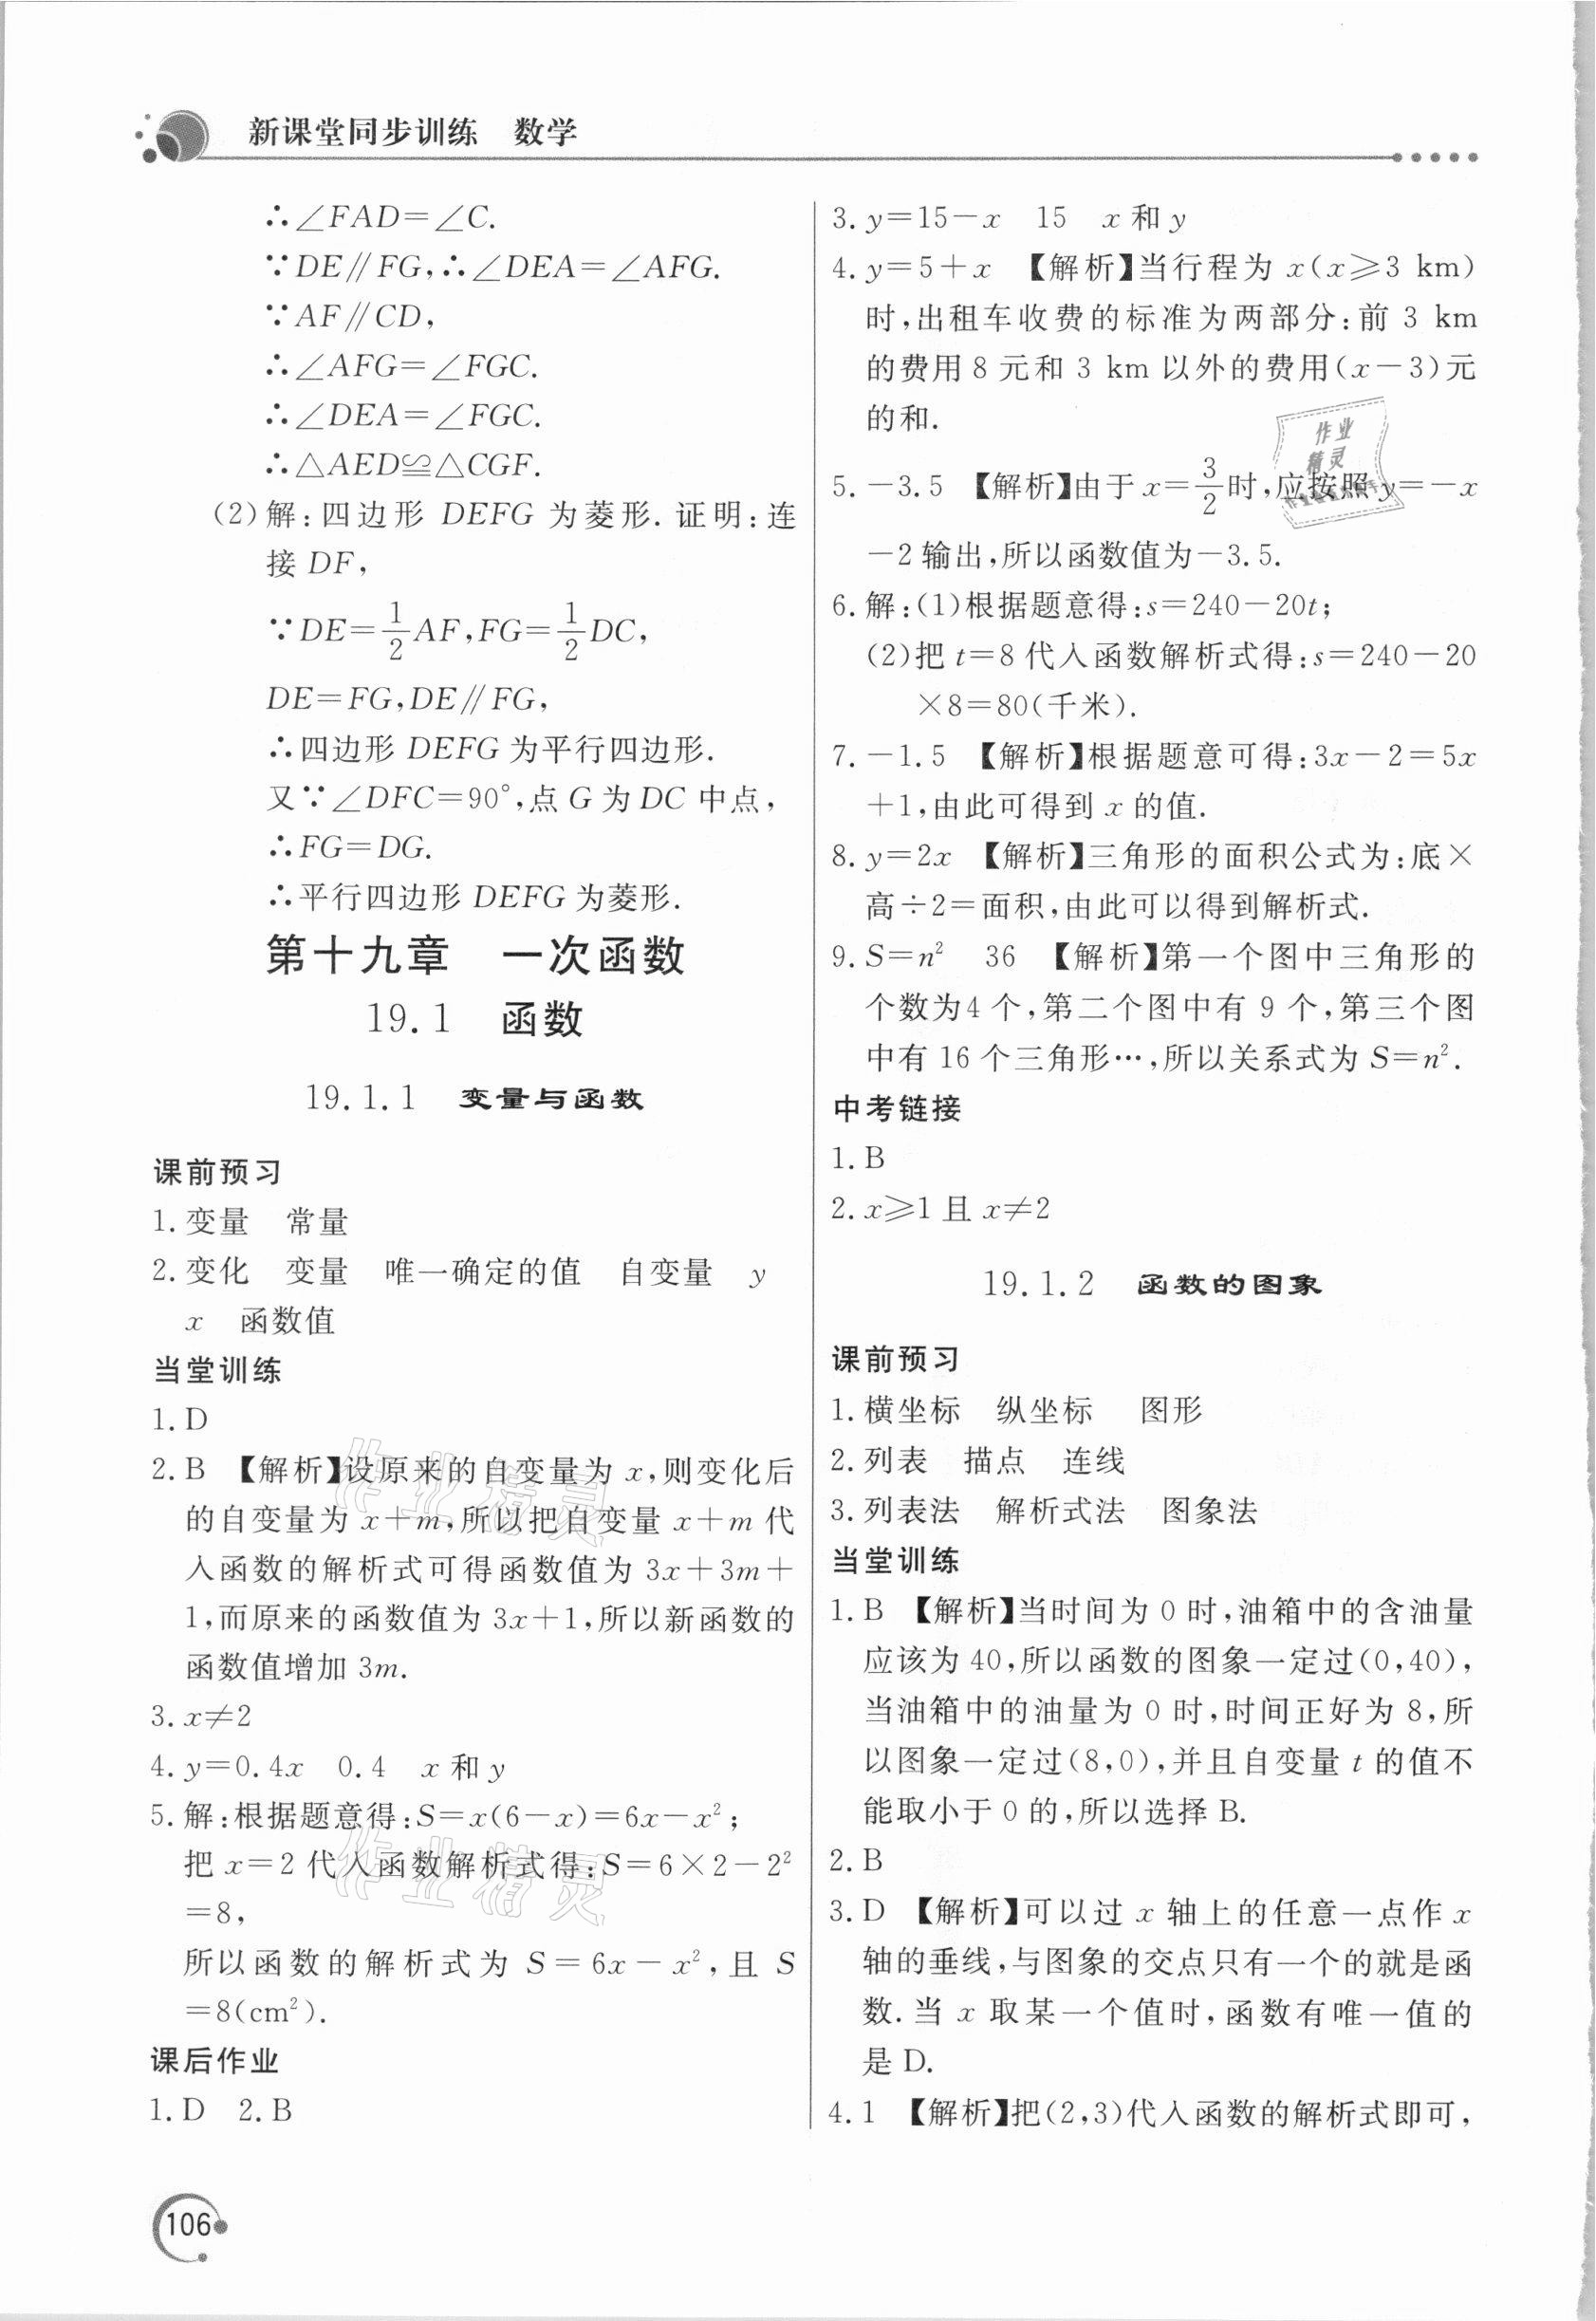 新课堂同步训练 数学
∴∠FAD=∠C.
∵DE∥FG,∴∠DEA=∠AFG.
∵AF∥CD,
∴∠AFG=∠FGC.
∴∠DEA=∠FGC.
∴△AED≌△CGF.
(2)解:四边形 DEFG 为菱形.证明:连
接 DF,
∵DE=1/2AF,FG=1/2DC,
DE=FG,DE∥FG,
∴四边形 DEFG 为平行四边形.
又∵∠DFC=90°,点 G 为 DC 中点,
∴FG=DG.
∴平行四边形 DEFG 为菱形.
第十九章 一次函数
19.1 函数
19.1.1 变量与函数
课前预习
1.变量 常量
2.变化 变量 唯一确定的值 自变量 y
x 函数值
当堂训练
1.D
2.B 【解析】设原来的自变量为 x,则变化后
的自变量为 x+m,所以把自变量 x+m 代
入函数的解析式可得函数值为 3x+3m+
1,而原来的函数值为 3x+1,所以新函数的
函数值增加 3m.
3.x≠2
4.y=0.4x 0.4 x 和 y
5.解:根据题意得:S=x(6-x)=6x-x²;
把 x=2 代入函数解析式得:S=6×2-2²
=8,
所以函数的解析式为 S=6x-x²,且 S
=8(cm²).
课后作业
1.D 2.B
3.y=15-x 15 x 和 y
4.y=5+x 【解析】当行程为 x(x≥3 km)
时,出租车收费的标准为两部分:前 3 km
的费用 8 元和 3 km 以外的费用(x-3)元
的和.
5.-3.5 【解析】由于 x=3/2时,应按照 y=-x
-2 输出,所以函数值为-3.5.
6.解:(1)根据题意得:s=240-20t;
(2)把 t=8 代入函数解析式得:s=240-20
×8=80(千米).
7.-1.5 【解析】根据题意可得:3x-2=5x
+1,由此可得到 x 的值.
8.y=2x 【解析】三角形的面积公式为:底×
高÷2=面积,由此可以得到解析式.
9.S=n² 36 【解析】第一个图中三角形的
个数为4 个,第二个图中有 9 个,第三个图
中有 16 个三角形…,所以关系式为 S=n².
中考链接
1.B
2.x≥1 且 x≠2
19.1.2 函数的图象
课前预习
1.横坐标 纵坐标 图形
2.列表 描点 连线
3.列表法 解析式法 图象法
当堂训练
1.B 【解析】当时间为 0 时,油箱中的含油量
应该为 40,所以函数的图象一定过(0,40),
当油箱中的油量为 0 时,时间正好为 8,所
以图象一定过(8,0),并且自变量 t 的值不
能取小于 0 的,所以选择 B.
2.B
3.D 【解析】可以过 x 轴上的任意一点作 x
轴的垂线,与图象的交点只有一个的就是函
数.当 x 取某一个值时,函数有唯一值的
是 D.
4.1 【解析】把(2,3)代入函数的解析式即可,
106
作业
精灵
作业精灵
作业精灵